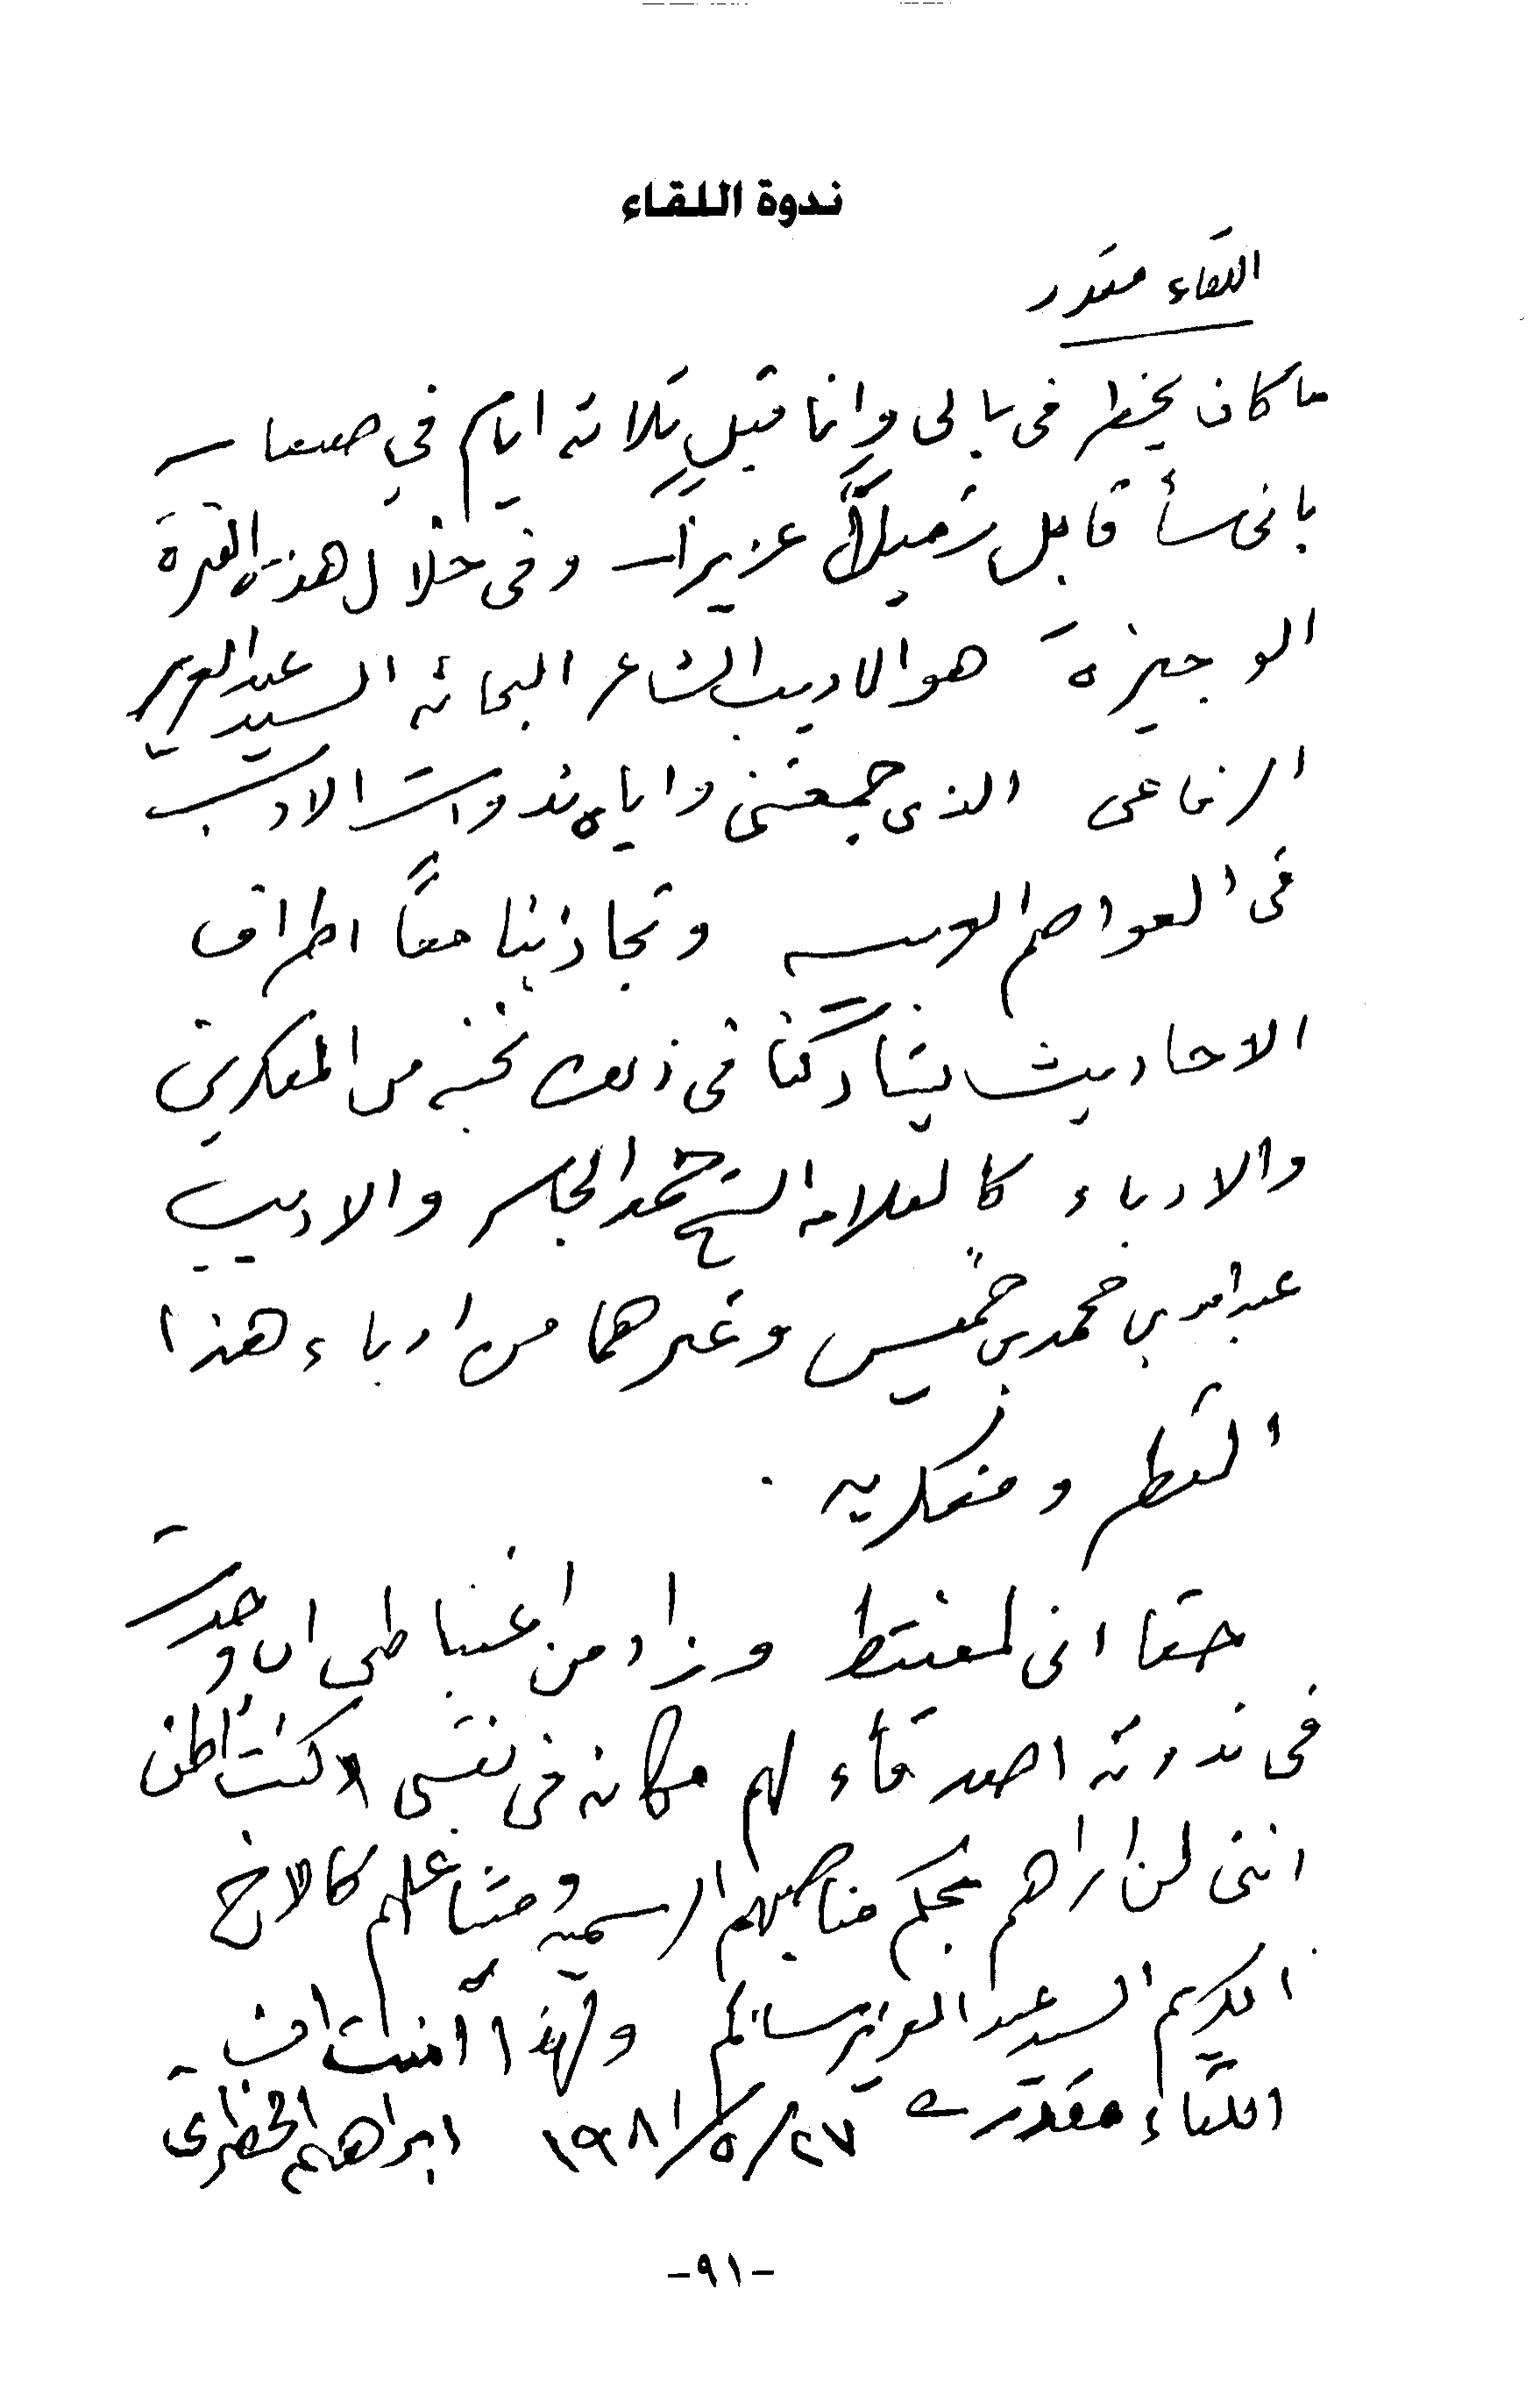 ندوة اللقاء
اللقاء مقدر
ما كان يخطر فى بالى وانا قبل ثلاثة ايام في صنعاء
بانى سأقابل زميلاً عزيزاً وفى خلال هذه الفترة
الوجيزة هو الاديب الشاعر البحاثه السيد عبد العزيز
الرفاعى الذى جمعتنى واياه ندوات الادب
فى العواصم العربيه وتجاذبنا معاً اطراف
الاحاديث يشاركنا فى ذلك نخبه من المفكرين
والادباء كالعلامه الشيخ حمد الجاسر والاديب
عبد الله بن محمد بن خميس وغيرهما من ادباء هذا
القطر ومفكريه .
حقا انى لمغتبط وزاد من اغتباطى ان وجدت
فى ندوته اصدقاء لهم مكانه فى نفسى لا كنت اظن
اننى لن اراهم بحكم مناصبهم الرسميه ومشاغلهم كالاخ
الكريم السيد عبد العزيز سالم ولهذا آمنت ان
اللقاء مقدر ٢٧/٥/١٩٨١ ابراهيم الحضرانى
-٩١-